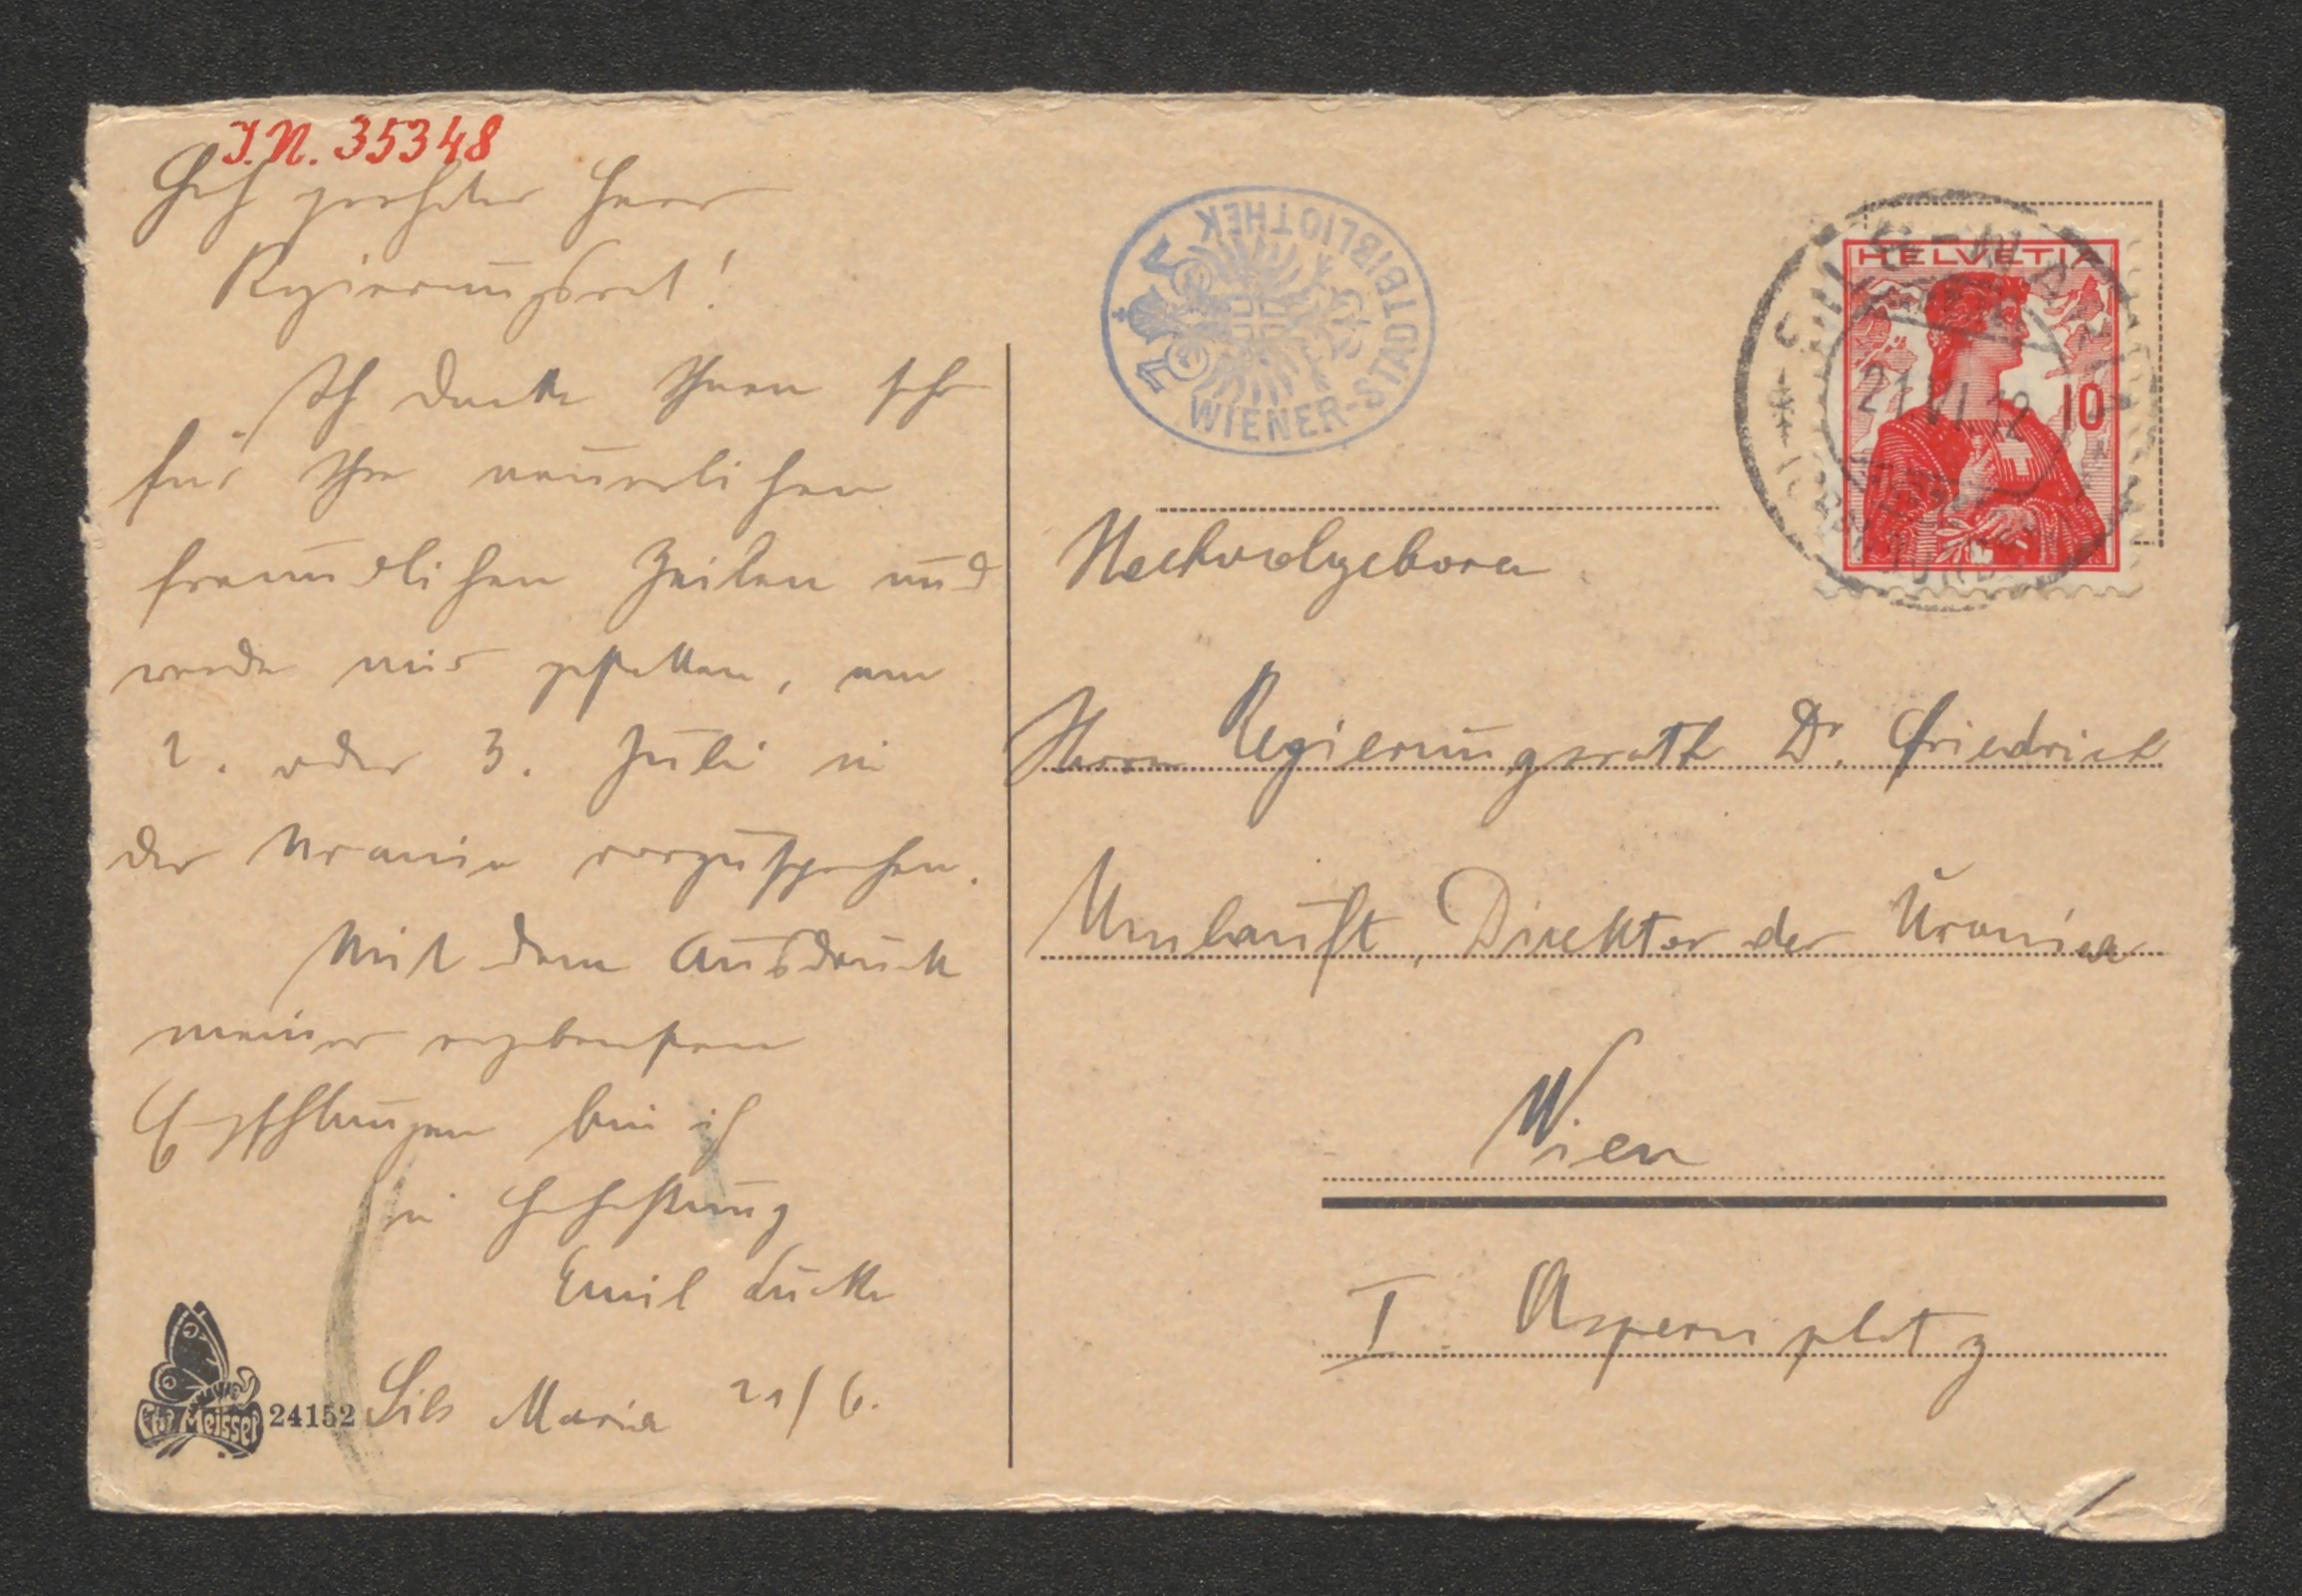 I.N. 35348
Hoch geehrter Herr
Regierungsrat!
Ich danke Ihnen sehr
für Ihre neuerlichen
freundlichen Zeilen und
werde mir gestatten, am
2. oder 3. Juli in
der Urania vorzusprechen.
Mit dem Ausdruck
meiner ergebensten
Empfehlungen bin ich
in Hochachtung
Emil Lucka
Sils Maria 21/6.
24152
Meissel
WIENER-STADTBIBLIOTHEK
HELVETIA
10
21.VI.12
Hochwolgeboren
Herrn Regierungsrath Dr. Friedrich
Umlauft, Direktor der Urania
Wien
I Aspernplatz